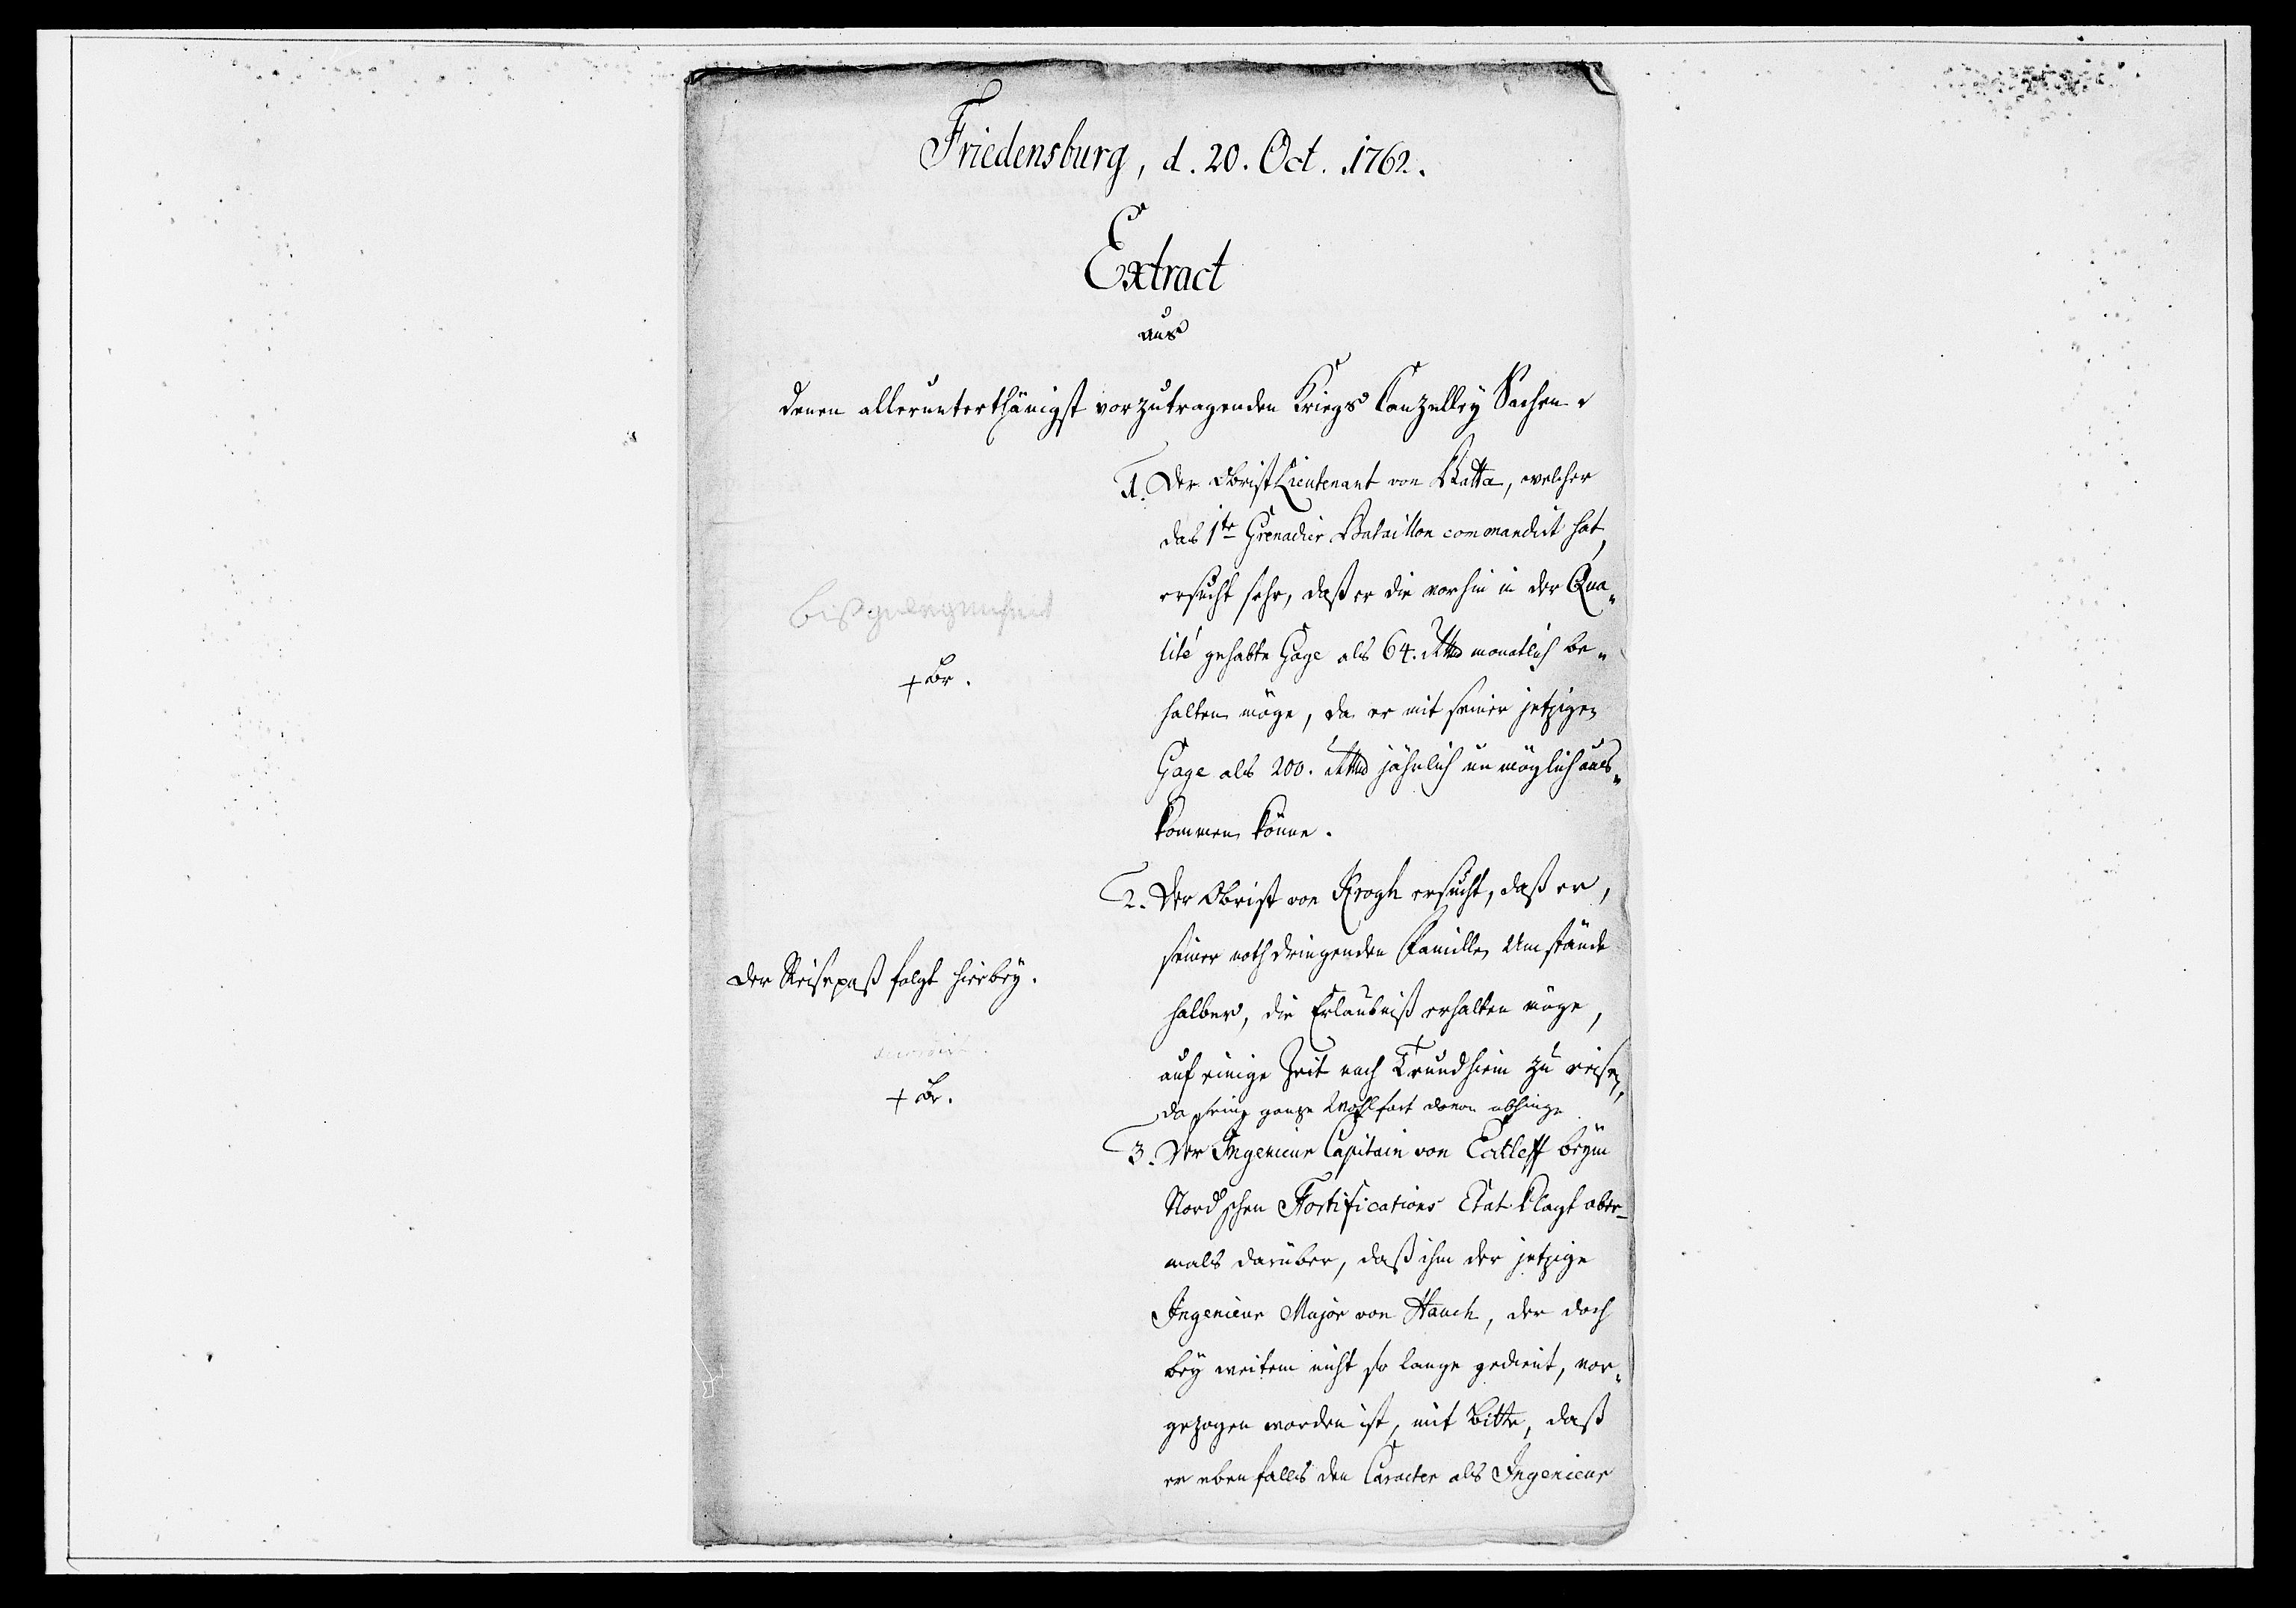 Friedensburg, d. 20. Oct. 1762.
Extract
aus
denen allerunterthänigst vorzutragenden Kriegs Canzelley Sachen.
1. Der Obrist Lieutenant von Ratta, welcher
das 1te Grenadier Bataillon commandirt hat,
ersucht sehr, daß er die vorhin in der Qua„
lité gehabte Gage als 64. Rthlr monatlich be„
halten möge, da er mit seiner jetzigen
Gage als 200. Rthlr jährlich unmöglich aus„
kommen könne.
biß gelegenheit
+ Br.
2. Der Obrist von Krogh ersucht, daß er,
seiner nothdringenden Familler Umstände
halber, die Erlaubniß erhalten möge,
auf einige Zeit nach Trundhiem zu reisen,
da seine ganze Wohlfart davon abhinge
Der Reisepaß folgt hierbey.
accordirt.
+ Br.
3. Der Ingenieur Capitain von Eatleff beym
Nordschen Fortifications Etat klagt aber-
mals darüber, daß ihm der jetzige
Ingenieur Major von Hauch, der doch
bey weitem nicht so lange gedient, vor„
gezogen worden ist, mit Bitte, daß
er ebenfalls den Caracter als Ingenieur